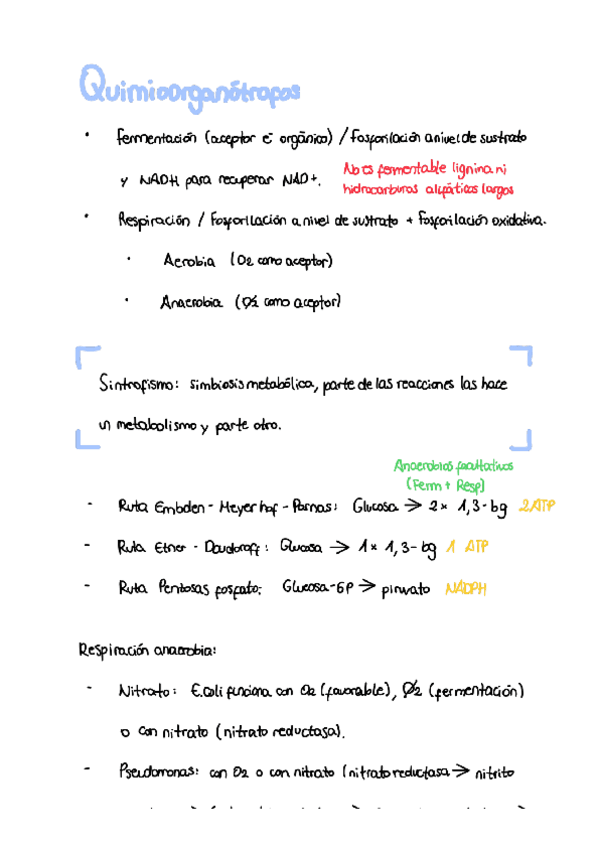 Quimioorganótrofos
• Fermentación (aceptor e⁻ orgánico) / Fosforilación a nivel de sustrato
y NADH para recuperar NAD+. No es fermentable lignina ni
hidrocarburos alifáticos largos
• Respiración / Fosforilación a nivel de sustrato + Fosforilación oxidativa.
• Aerobia (O2 como aceptor)
• Anaerobia (O̸2 como aceptor)
Sintrofismo: simbiosis metabólica, parte de las reacciones las hace
un metabolismo y parte otro.
Anaerobios facultativos
(Ferm + Resp)
- Ruta Embden - Meyerhof - Parnas: Glucosa → 2x 1,3-bg 2ATP
- Ruta Etner - Doudoroff: Glucosa → 1x 1,3-bg 1 ATP
- Ruta Pentosas fosfato: Glucosa-6P → piruvato NADPH
Respiración anaerobia:
- Nitrato: E.Coli funciona con O2 (favorable), O̸2 (fermentación)
o con nitrato (nitrato reductasa).
- Pseudomonas: con O2 o con nitrato (nitrato reductasa → nitrito